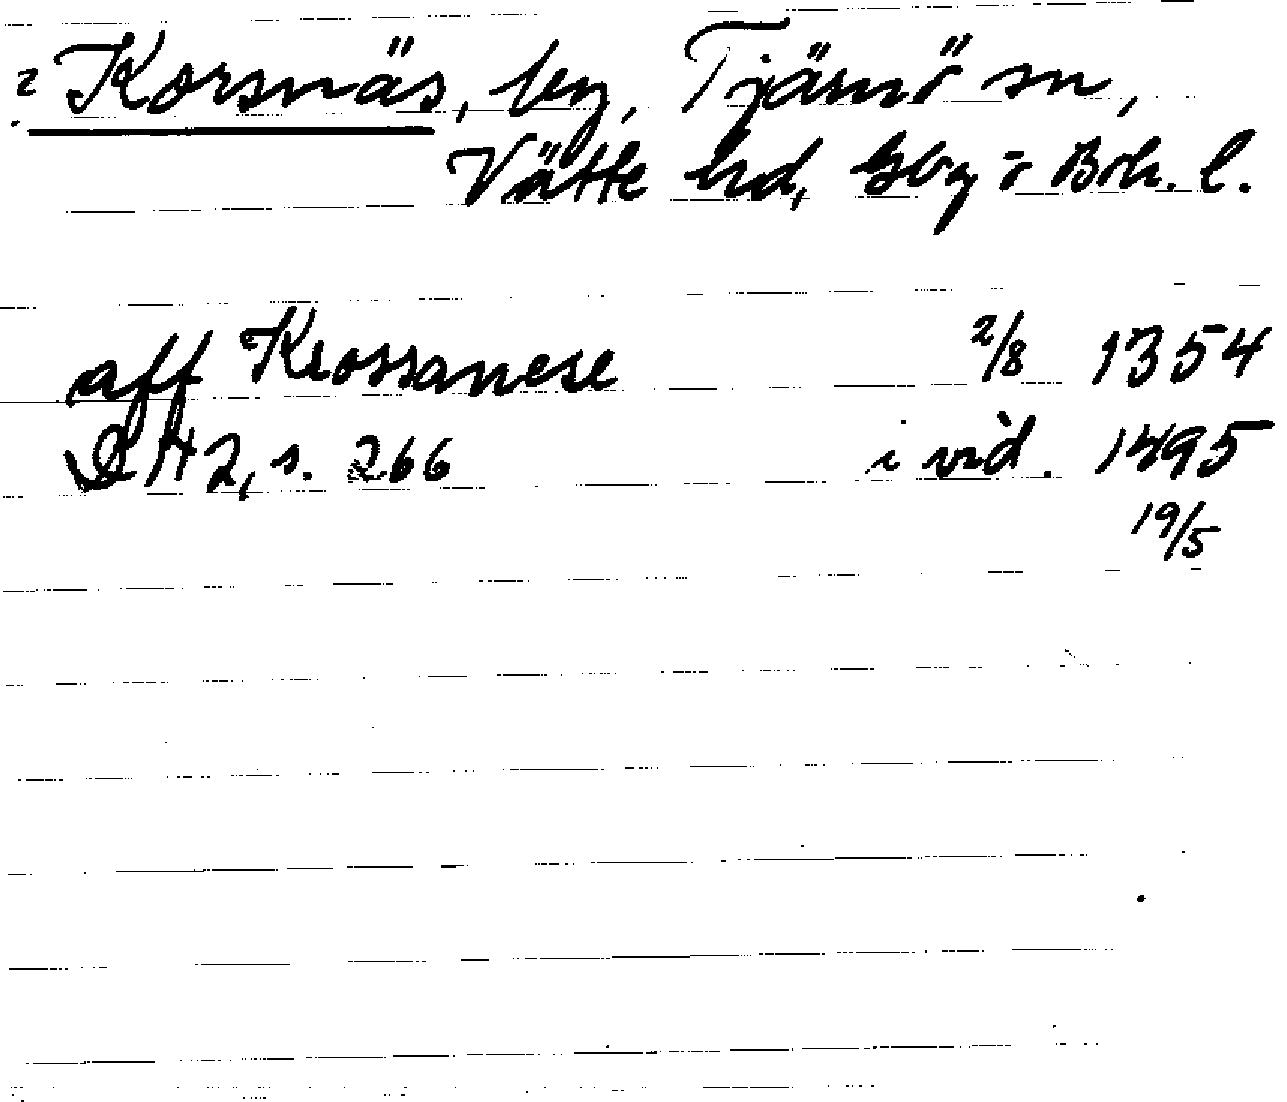 ? Korsnäs, by, Tjärnö sn,
Vätte hd, Gbg o Boh. l.
aff Krossanese 2/8 1354
DN 2, s. 266 i vid. 1495
19/5